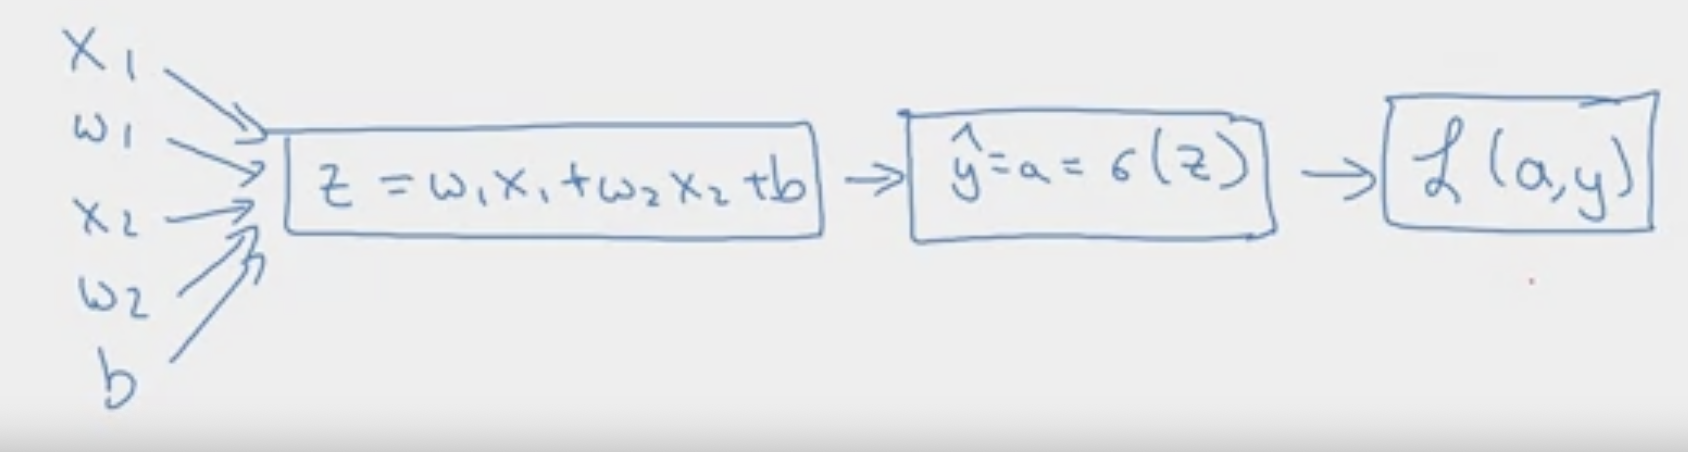 x₁
w₁
x₂
w₂
b
z = w₁x₁ + w₂x₂ + b
ŷ = a = σ(z)
ℒ(a,y)